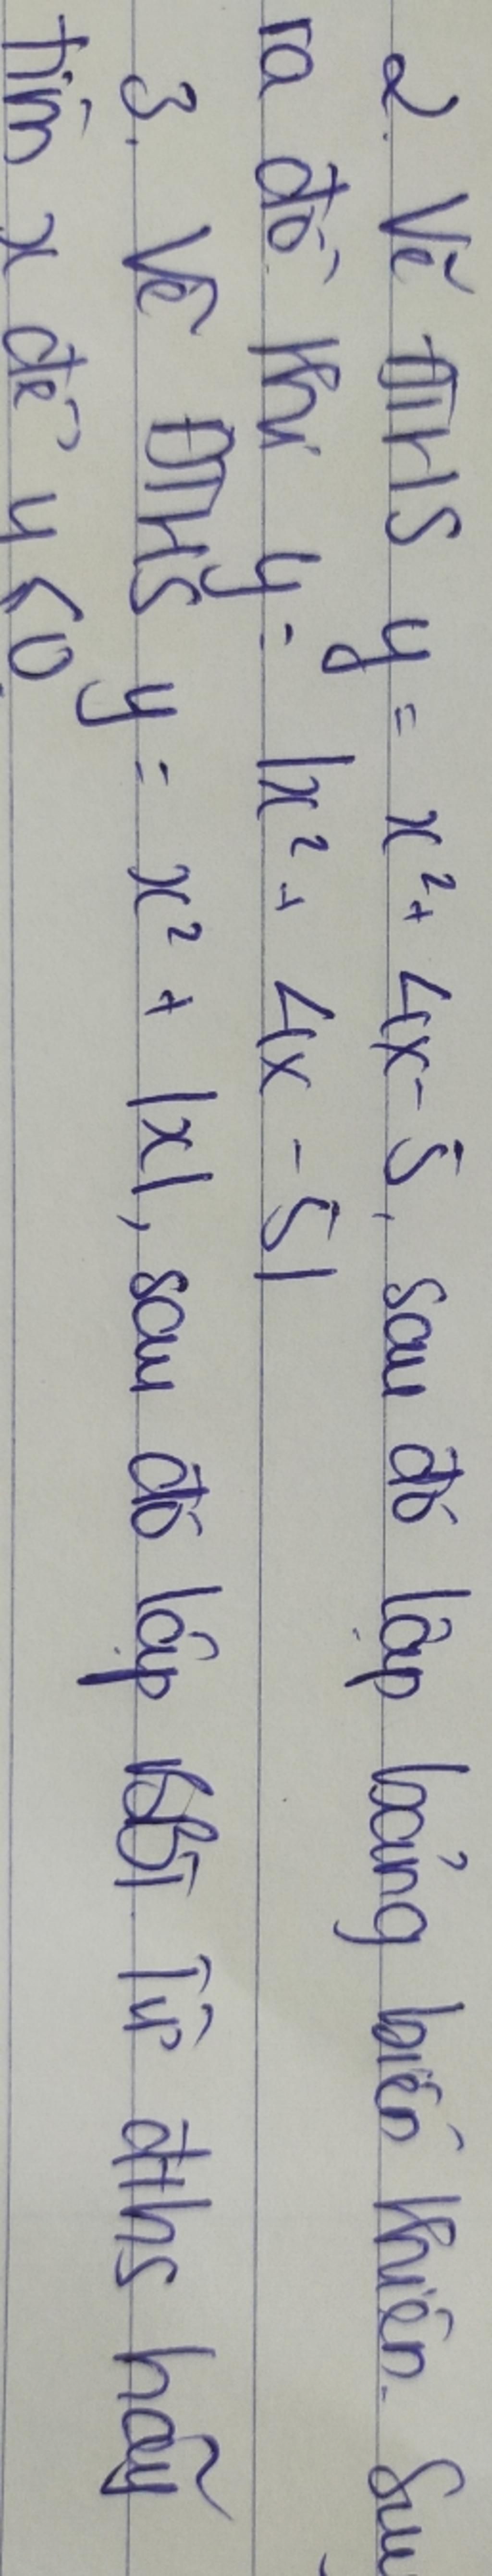 2. Vẽ ĐTHS y = x² + 4x - 5, sau đó lập bảng biến thiên. Suy
ra đồ thị y = |x² + 4x - 5|
3. Vẽ ĐTHS y = x² + |x|, sau đó lập BBT. Từ đths hãy
tìm x để y < 0.